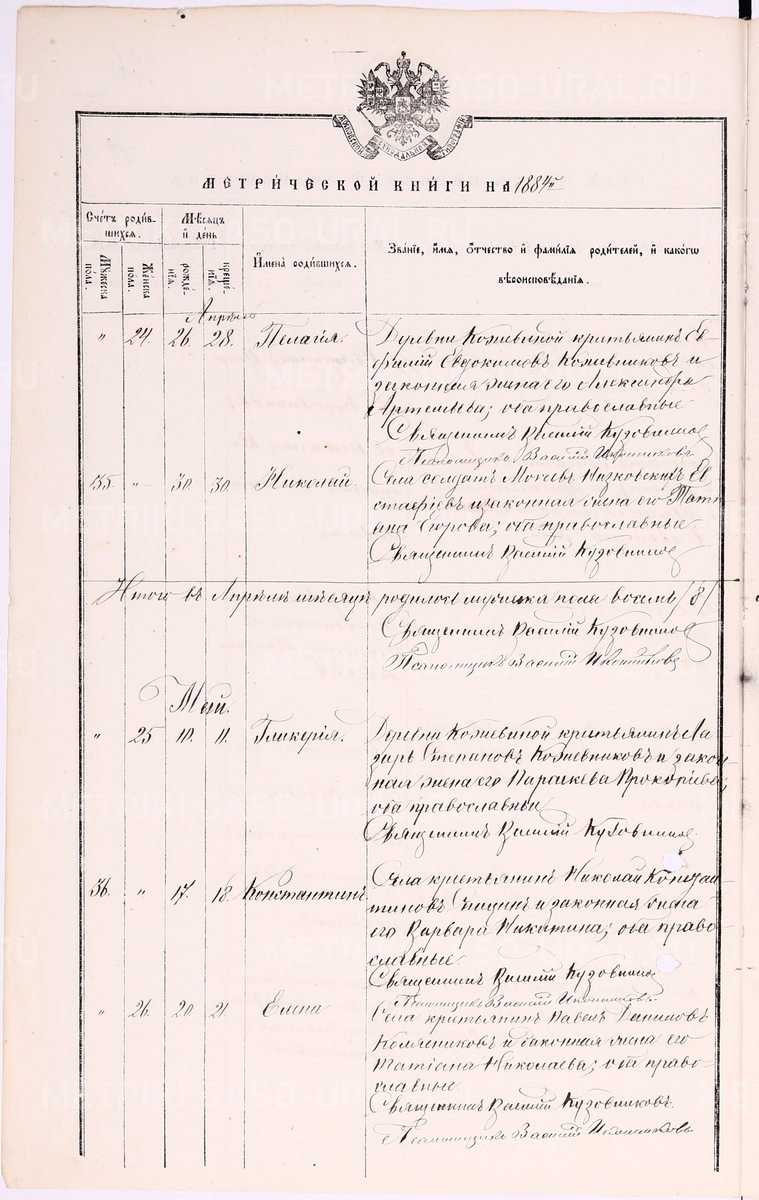 МЕТРИЧЕСКОЙ КНИГИ НА 1884й
Счетъ родив-
шихся.
Мѣсяцъ
и день
Имена родившихся.
Званіе, имя, отчество и фамилія родителей, и какого
вѣроисповѣданія.
Мужеска
пола.
Женска
пола.
рожде-
нія.
креще-
нія.
Апрѣль
" 24. 26. 28. Пелагія. Деревни Кожевиной крестьянинъ Ев-
фимій Евдокимовъ Кожевниковъ и
законная жена его Александра
Артемьева; оба православные
Священникъ Василій Кузовниковъ
Псаломщикъ Василій Иконниковъ
35. " 30. 30. Николай. Села солдатъ Ев-
стафіевъ и законная жена его Тать-
яна Егорова; оба православные
Священникъ Василій Кузовниковъ
Итого въ Апрѣлѣ мѣсяцѣ родилось мужеска пола восемь /8/
Священникъ Василій Кузовниковъ
Псаломщикъ Василій Иконниковъ
Май.
" 25 10. 11. Гликерія. Деревни Кожевиной крестьянинъ Ла-
зарь Степановъ Кожевниковъ и закон-
ная жена его Параскева Прокопьева;
оба православные
Священникъ Василій Кузовниковъ
36. " 17. 18. Константинъ. Села крестьянинъ Николай Констан-
тиновъ и законная жена
его Варвара Никитина; оба право-
славные.
Священникъ Василій Кузовниковъ
Псаломщикъ Василій Иконниковъ
" 26. 20. 21. Елена Села крестьянинъ Павелъ Даниловъ
Колясниковъ и законная жена его
Татіана Николаева; оба право-
славные
Священникъ Василій Кузовниковъ.
Псаломщикъ Василій Иконниковъ